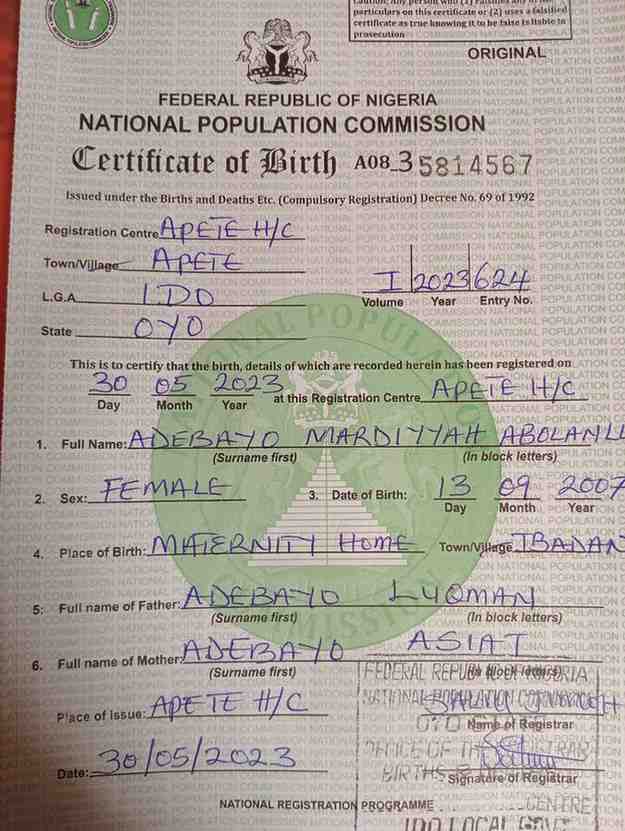 Caution: Any person who (1) falsifies any of the
particulars on this certificate or (2) uses a falsified
certificate as true knowing it to be false is liable to
prosecution
ORIGINAL
FEDERAL REPUBLIC OF NIGERIA
NATIONAL POPULATION COMMISSION
Certificate of Birth A08_35814567
Issued under the Births and Deaths Etc. (Compulsory Registration) Decree No. 69 of 1992
Registration Centre APETE H/C
Town/Village APETE
I 2023 624
L.G.A IDO
Volume Year Entry No.
State OYO
This is to certify that the birth, details of which are recorded herein has been registered on
30 05 2023 at this Registration Centre APETE H/C
Day Month Year
1. Full Name: ADEBAYO MARDIYYAH ABOLANLE
(Surname first) (In block letters)
2. Sex: FEMALE 3. Date of Birth: 13 09 2007
Day Month Year
4. Place of Birth: MATERNITY HOME Town/Village IBADAN
5: Full name of Father: ADEBAYO LUQMAN
(Surname first) (In block letters)
6. Full name of Mother: ADEBAYO ASIAT
(Surname first) (In block letters)
FEDERAL REPUBLIC OF NIGERIA
NATIONAL POPULATION COMMISSION
Place of Issue: APETE H/C
OYO Name of Registrar
OFFICE OF THE REGISTRAR
Date: 30/05/2023
BIRTHS Signature of Registrar
NATIONAL REGISTRATION PROGRAMME CENTRE
IDO LOCAL GOVT